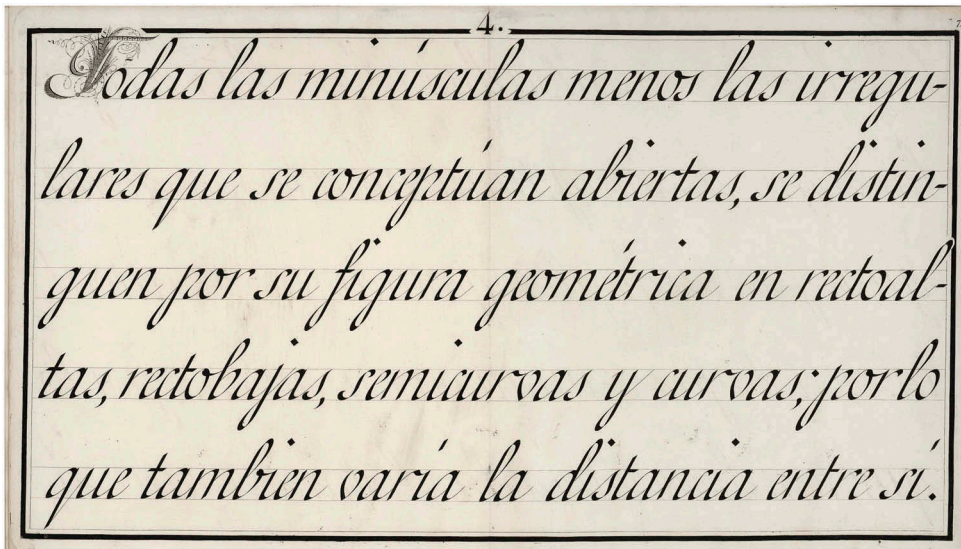 4.
Todas las minúsculas menos las irregu-
lares que se conceptúan abiertas, se distin-
guen por su figura geométrica en rectoal-
tas, rectobajas, semicurvas y curvas; por lo
que tambien varía la distancia entre sí.